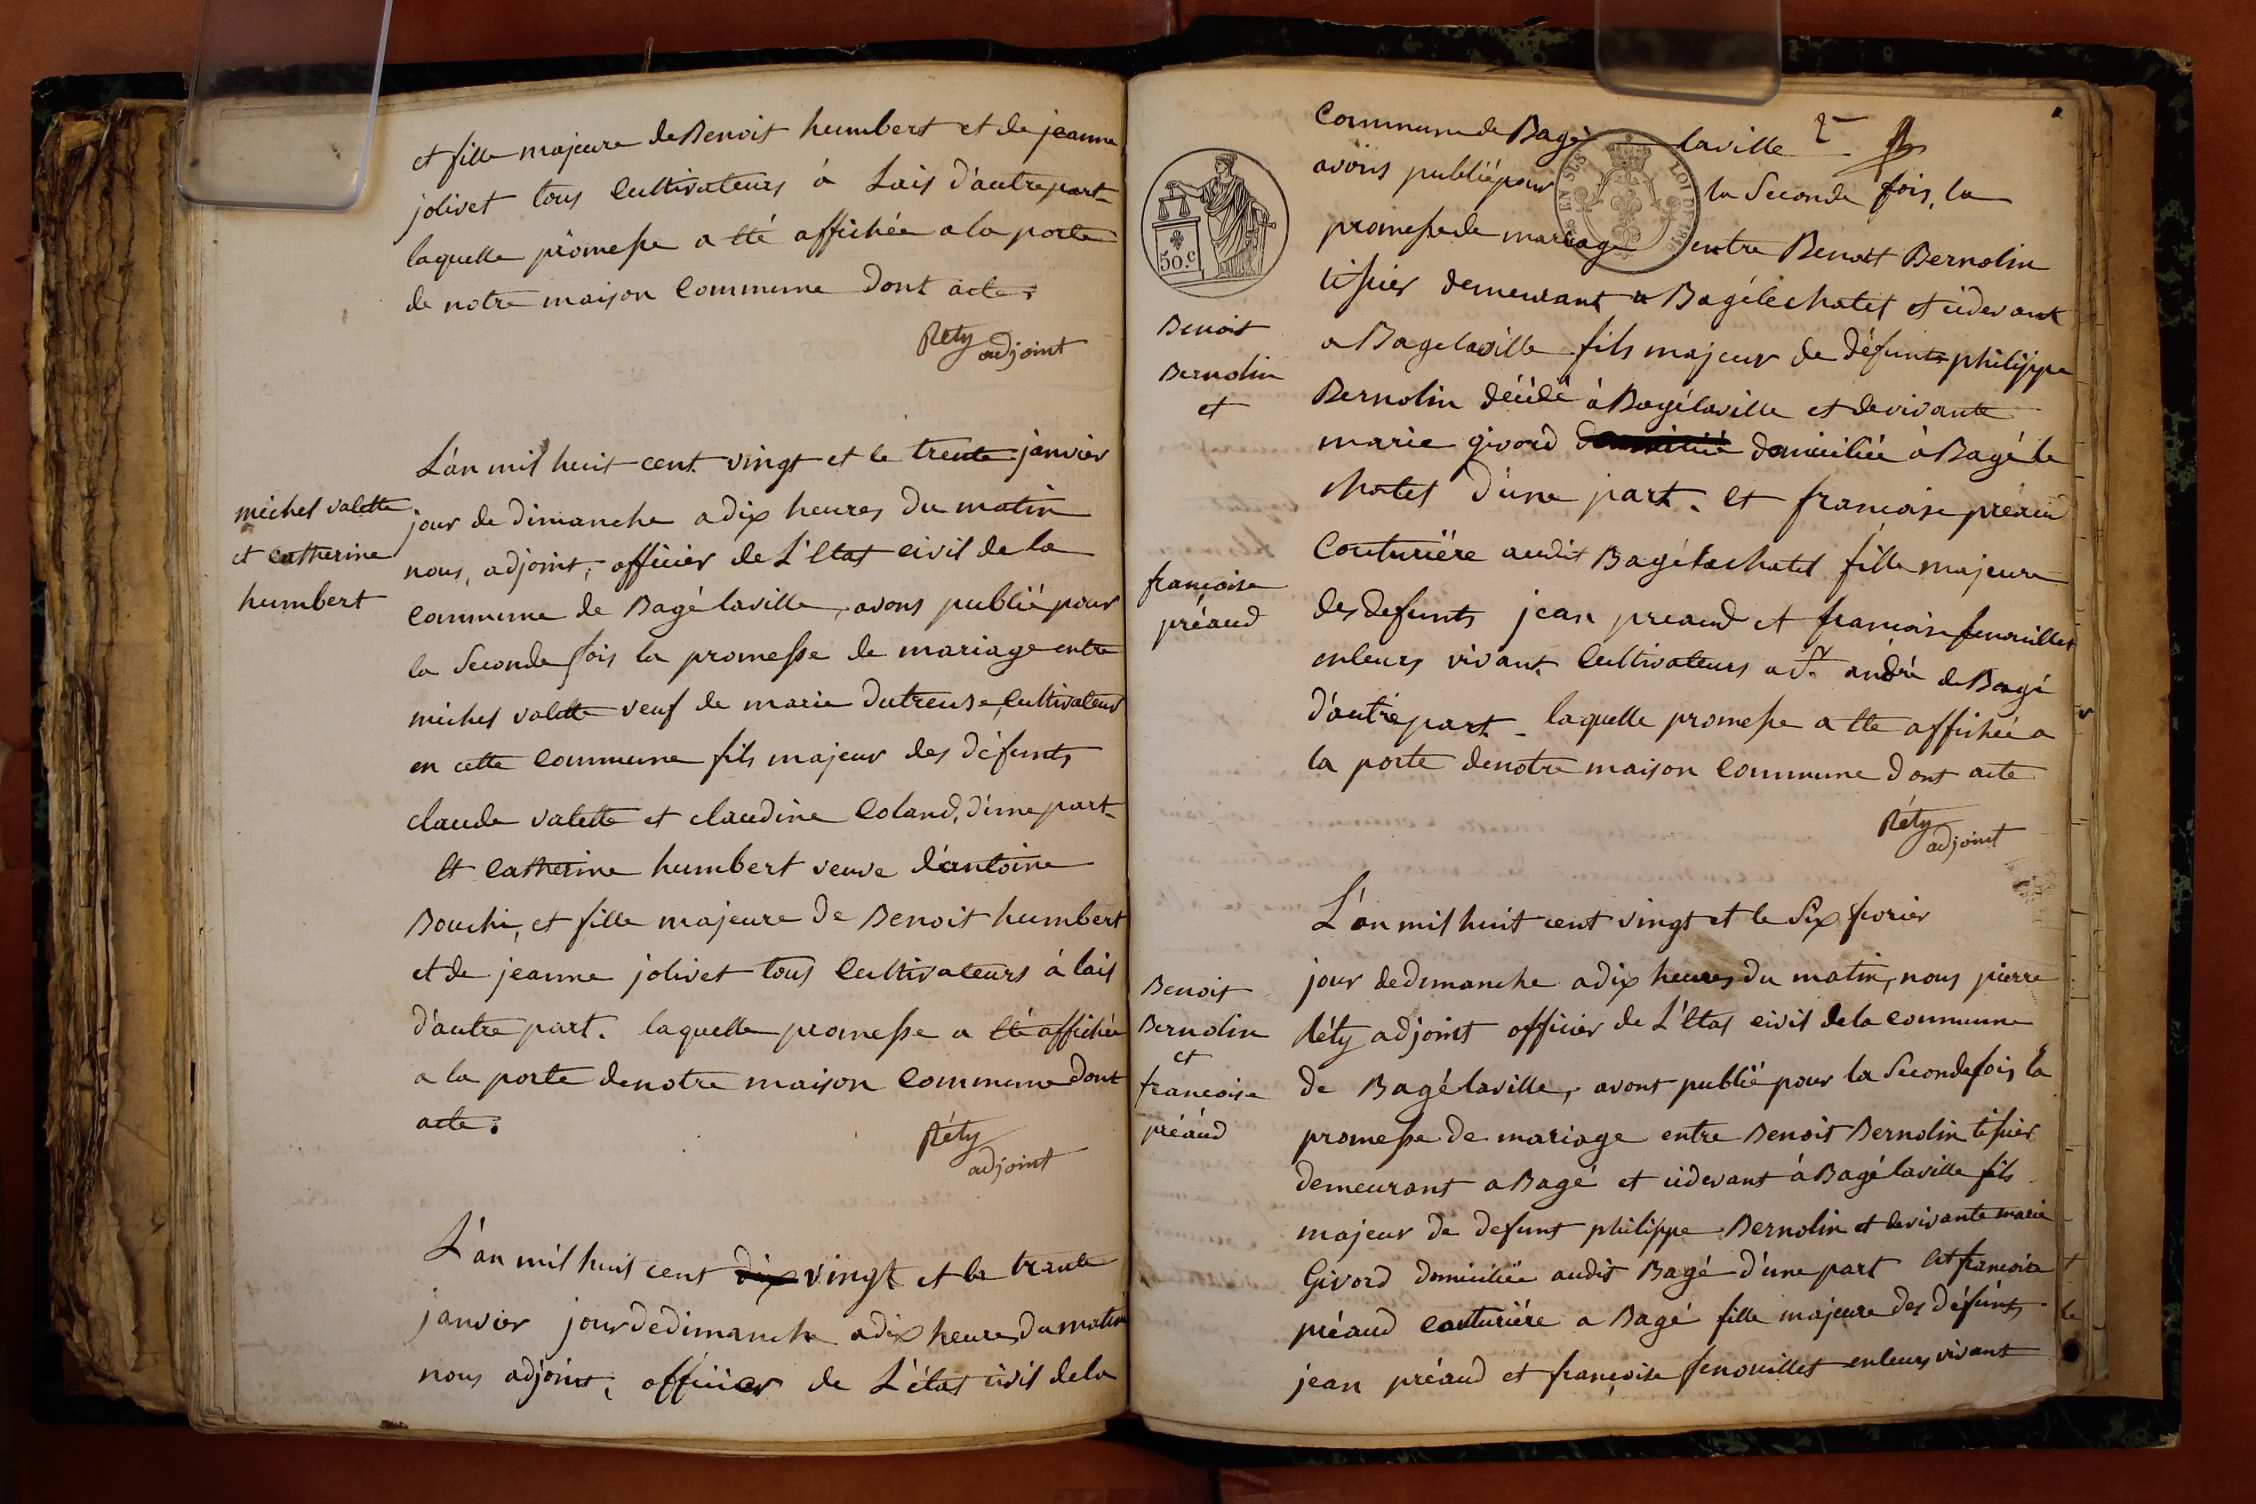 et fille majeure de Benoit humbert et de jeanne
jolivet tous Cultivateurs à Lais d'autre part
laquelle promesse a été affichée a la porte
de notre maison Commune dont acte.
Réty
adjoint
michel valette
et catherine
humbert
L'an mil huit cent vingt et le trente janvier
jour de dimanche a dix heures du matin
nous, adjoint, officier de L'Etat civil de la
commune de Bagé laville, avons publié pour
la Seconde fois la promesse de mariage entre
michel valette veuf de marie dutreuse, cultivateur
en cette Commune fils majeur des défunts
claude valette et claudine Coland, d'une part
Et Catherine humbert veuve d'antoine
Bouchi, et fille majeure de Benoit humbert
et de jeanne jolivet tous Cultivateurs à lais
d'autre part. laquelle promesse a été affichée
a la porte de notre maison Commune dont
acte.
Réty
adjoint
L'an mil huit cent dix vingt et le trente
janvier jour de dimanche a dix heures du matin
nous adjoint, officier de L'état civil de la
Commune de Bagé laville 2
avons publié pour la Seconde fois, la
promesse de mariage entre Benoit Bernolin
tissier demeurant a Bagé le chatel et cidevant
a Bagé laville fils majeur de défunts philippe
Bernolin décédé à Bagé laville et de vivante
marie givord domiciliée à Bagé le
chatel d'une part. et francoise préaud
Couturière audit Bagé lechatel fille majeure
des defunts jean preaud et francoise fenouillet
en leurs vivant Cultivateurs a St. andré de Bagé
d'autre part - laquelle promesse a été affichée a
la porte de notre maison Commune dont acte
Réty
adjoint
50.c
EN SUS
LOI DE 1816
Benoit
Bernolin
et
françoise
préaud
L'an mil huit cent vingt et le Six fevrier
jour de dimanche a dix heures du matin, nous pierre
Réty adjoint officier de L'Etat civil de la commune
de Bagé laville, avont publié pour la Seconde fois la
promesse de mariage entre Benoit Bernolin tissier
demeurant a Bagé et cidevant à Bagé laville fils
majeur de defunt philippe Bernolin et de vivante marie
Givord domiciliée audit Bagé d'une part et francoise
préaud couturière a Bagé fille majeure des défunts
jean préaud et françoise fenouillet en leurs vivant
Benoit
Bernolin
et
francoise
préaud